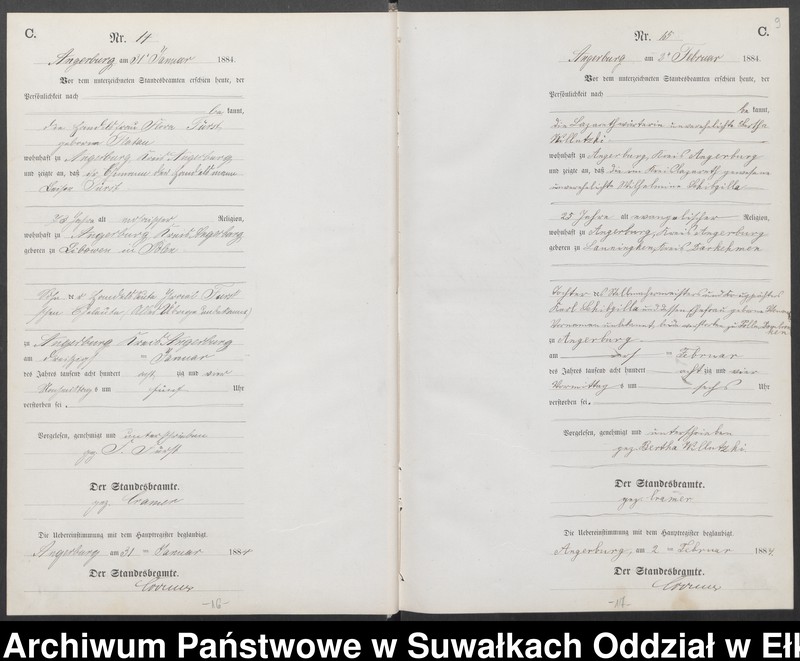 C.
Nr. 14
Angerburg am 31 Januar 1884.
Vor dem unterzeichneten Standesbeamten erschien heute, der
Persönlichkeit nach
be kannt,
die Handelsfrau Fürst
geborene
wohnhaft zu Angerburg Kreis Angerburg
und zeigte an, daß ihr Ehemann der Handelsmann
Fürst
Jahre alt Religion,
wohnhaft zu Angerburg Kreis Angerburg
geboren zu in Polen
Sohn der Handelsleute Fürst
zu Angerburg Kreis Angerburg
am Januar
des Jahres tausend acht hundert acht zig und vier
Nachmittags um fünf Uhr
verstorben sei.
Vorgelesen, genehmigt und unterschrieben
gez. Fürst
Der Standesbeamte.
gez. Cramer
Die Uebereinstimmung mit dem Hauptregister beglaubigt.
Angerburg am 31 ten Januar 1884
Der Standesbeamte.
Cramer
-16-
9
C.
Nr. 15
Angerburg am 2 Februar 1884.
Vor dem unterzeichneten Standesbeamten erschien heute, der
Persönlichkeit nach
be kannt,
die Lazarethwärterin unverehelichte Bertha
Willutzki
wohnhaft zu Angerburg, Kreis Angerburg
und zeigte an, daß die im Kreislazareth gewesene
unverehelichte Wilhelmine Schibgilla
25 Jahre alt evangelischer Religion,
wohnhaft zu Angerburg, Kreis Angerburg
geboren zu Kreis Darkehmen
Tochter des
Karl Schibgilla und dessen Ehefrau geborene
Vornamen unbekannt, beide verstorben zu
zu Angerburg
am ten Februar
des Jahres tausend acht hundert acht zig und vier
Vormittag s um sechs Uhr
verstorben sei.
Vorgelesen, genehmigt und unterschrieben
gez. Bertha Willutzki
Der Standesbeamte.
gez. Cramer
Die Uebereinstimmung mit dem Hauptregister beglaubigt.
Angerburg, am 2 ten Februar 1884.
Der Standesbeamte.
Cramer
-17-
Archiwum Państwowe w Suwałkach Oddział w Ełk